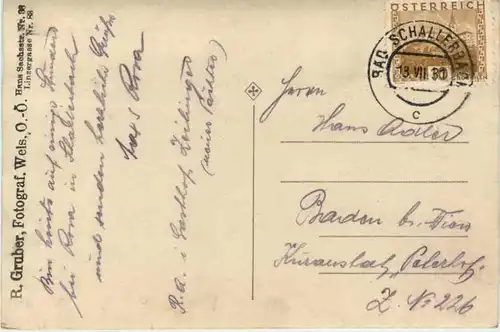 R. Gruber, Fotograf, Wels, O.-Ö. Hans Sachsstr. Nr. 36
Linzergasse Nr. 88
Bin heute auf einige Stunden
bei Rosa in Schallerbach
und senden herzliche Grüße
Rosa
P. A. i Gasthof Zeilinger
ÖSTERREICH
BAD SCHALLERBACH
13 VII 30
c
Herrn
Hans Adler
Baden bei Wien
Kuranstalt „Peterhof"
Z. No 226